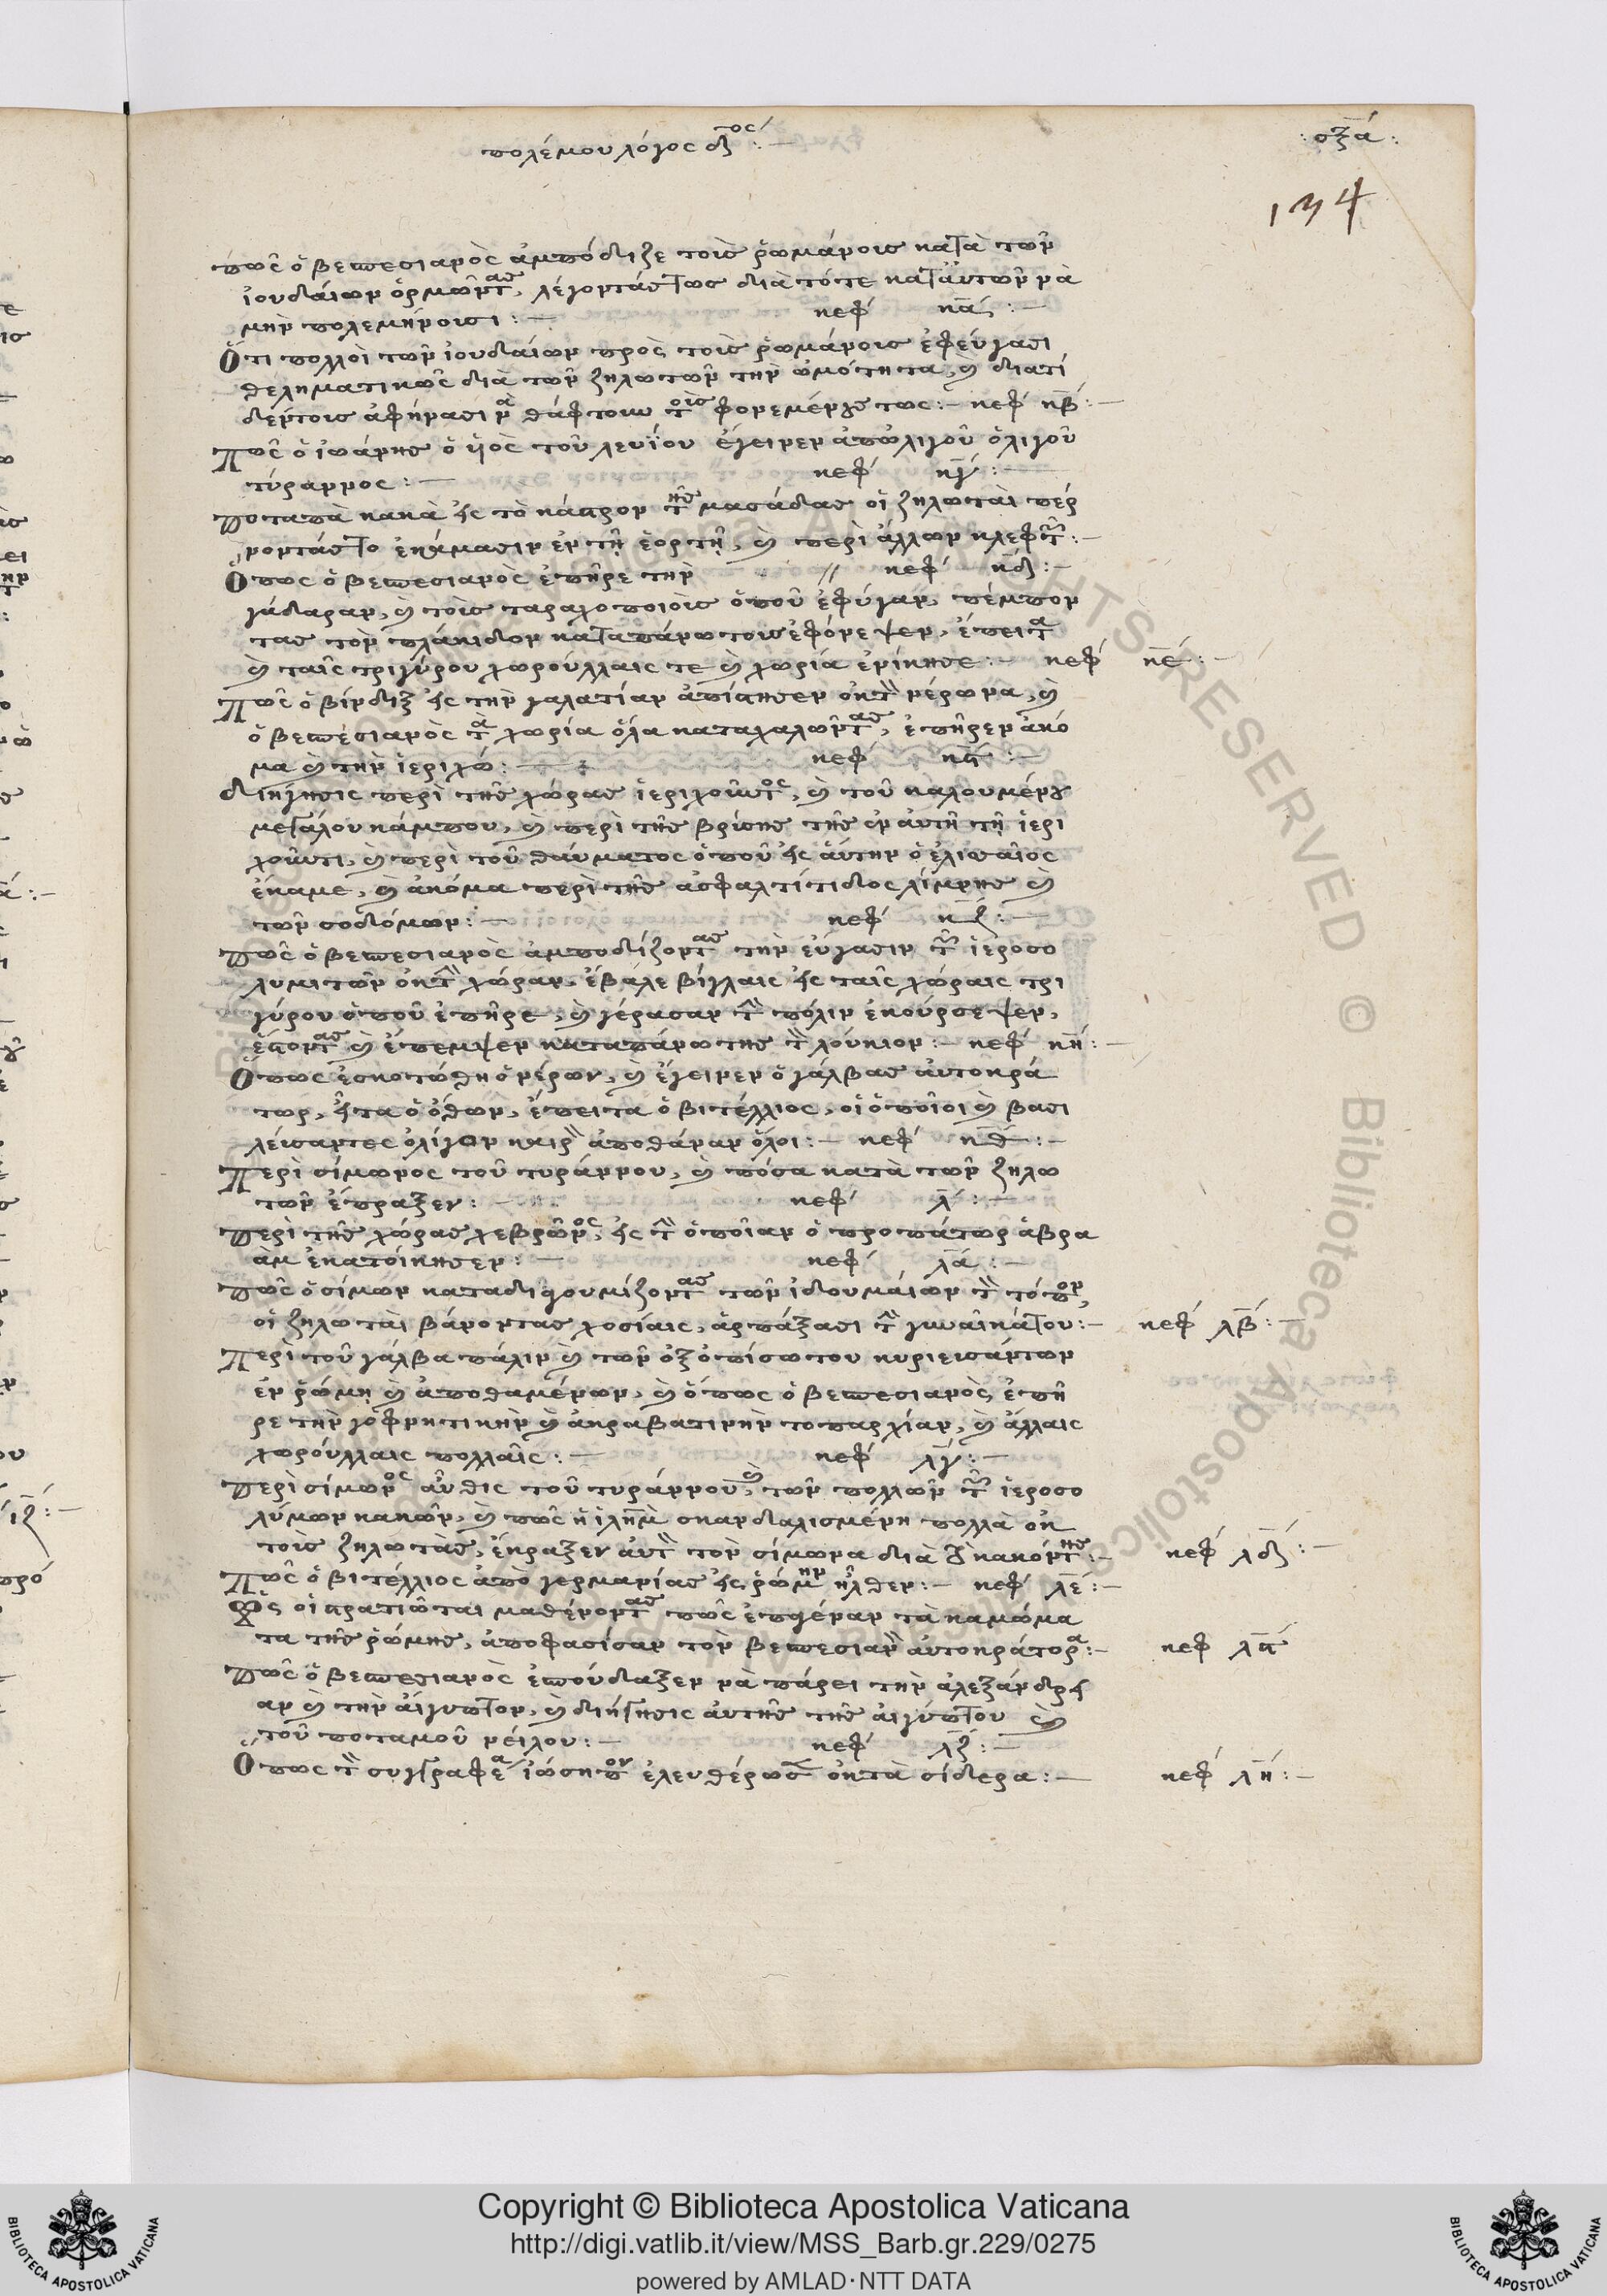 πολέμου λόγος δ^τος :—
: σξα :
134
πῶς ὁ βεσπεσιανὸς ἀμπόδιζε τοὺς ῥωμάνους κατὰ τῶν
ἰουδαίων ὁρμῶντας, λέγοντάς τως διὰ τότε κατ' αὐτῶν νὰ
μὴν πολεμήνουσι :— κεφ κα :—
Ὅτι πολλοὶ τῶν ἰουδαίων πρὸς τοὺς ῥωμάνους ἐφεύγασι
θεληματικῶς διὰ τῶν ζηλωτῶν τὴν ὠμότητα, καὶ διατί
δὲν τοὺς ἀφήνασι νὰ θάφτουν τοὺς φονεμένους τως :— κεφ κβ :—
Πῶς ὁ ἰωάννης ὁ ὑιὸς τοῦ λευΐου ἐγεινεν ἀπὠλιγοῦ ὀλιγοῦ
τύραννος :— κεφ κγ :—
Ποταπὰ κακὰ εἰς τὸ κάστρον τῆς μασάδας οἱ ζηλωταὶ περ
νοντάς το ἐκάμασιν ἐν τῇ ἑορτῇ, καὶ περὶ ἄλλων κλεφτῶν :—
Ὅπως ὁ βεσπεσιανὸς ἐπῆρε τὴν // κεφ κδ :—
γάδαραν, καὶ τοὺς ταραχοποιοὺς ὁποῦ ἐφύγαν, πέμπον
τας τὸν πλάκιδον καταπάνω τους ἐφόνεψεν, ἔπειτα
καὶ ταῖς τριγύρου χωρούλλαις τε καὶ χωρία ἐνίκησε :— κεφ κε :—
Πῶς ὁ βίνδιξ εἰς τὴν γαλατίαν ἀπίστησεν ὀκ τὸν νέρωνα, καὶ
ὁ βεσπεσιανὸς τὰ χωρία ὅλα καταχαλῶντας, ἐπῆρεν ἀκό
μα καὶ τὴν ἱεριχώ :— κεφ κστ :—
διήγησις περὶ τῆς χώρας ἱεριχοῦντος, καὶ τοῦ καλουμένου
μεγάλου κάμπου, καὶ περὶ τῆς βρύσης τῆς ἐν αὐτῇ τῇ ἱερι
χοῦντι, καὶ περὶ τοῦ θαύματος ὁποῦ εἰς αὔτην ὁ ἐλισσαῖος
ἔκαμε, καὶ ἀκόμα περὶ τῆς ἀσφαλτίτιδος λίμνης καὶ
τῶν σοδόμων :— κεφ κζ :—
Πῶς ὁ βεσπεσιανὸς ἀμποδίζοντας τὴν εὔγασιν τῶν ἱεροσο
λυμιτῶν ὀκ τὴν χώραν, ἔβαλε βίγλαις εἰς ταῖς χώραις τρι
γύρου ὁποῦ ἐπῆρε, καὶ γέρασαν τὴν πόλιν ἐκούρσεψεν,
ἔστοντας καὶ ἔπεμψεν καταπάνω της τὸν λούκιον :— κεφ κη :—
Ὅπως ἐσκοτώθη ὁ νέρων, καὶ ἔγεινεν ὁ γάλβας αὐτοκρά
τωρ, εἶτα ὁ ὄθων, ἔπειτα ὁ βιτέλλιος, οἱ ὁποῖοι καὶ βασι
λεύσαντες ὀλίγον καιρὸν ἀποθάναν ὅλοι :— κεφ κθ :—
Περὶ σίμωνος τοῦ τυράννου, καὶ πόσα κατὰ τῶν ζηλω
τῶν ἔπραξεν :— κεφ λ :—
Περὶ τῆς χώρας χεβρῶνος, εἰς τὴν ὁποῖαν ὁ προπάτωρ ἀβρα
ὰμ ἐκατοίκησεν :— κεφ λα :—
Πῶς ὁ σίμων καταδιγουμίζοντας τῶν ἰδουμαίων τὸν τόπον,
οἱ ζηλωταὶ βάνοντας χοσίαις, ἁρπάξασι τὴν γυναῖκά του :— κεφ λβ :—
Περὶ τοῦ γάλβα πάλιν καὶ τῶν ὀξοπίσω του κυριευσάντων
ἐν ῥώμῃ καὶ ἀποθαμένων, καὶ ὅπως ὁ βεσπεσιανὸς ἐπῆ
ρε τὴν γοφνητικὴν καὶ ἀκραβατινὴν τοπαρχίαν, καὶ ἄλλαις
χωρούλλαις πολλαῖς :— κεφ λγ :—
Περὶ σίμωνος αὖθις τοῦ τυράννου, καὶ τῶν πολλῶν τῶν ἱεροσο
λύμων κακῶν, καὶ πῶς ἡ ἰλημ σκανδαλισμένη πολλὰ ὀκ
τοὺς ζηλωτάς, ἔκραξεν αὐτὸν τὸν σίμωνα διὰ κακόν της :— κεφ λδ :—
Πῶς ὁ βιτέλλιος ἀπὸ γερμανίας εἰς ῥώμην ἦλθεν :— κεφ λε :—
Πῶς οἱ στρατιῶται μαθένοντας πῶς ἐπηγέναν τὰ καμώμα
τα τῆς ῥώμης, ἀποφασίσαν τὸν βεσπεσιανὸν αὐτοκράτορα :— κεφ λστ
Πῶς ὁ βεσπεσιανὸς ἐσπούδαξεν νὰ πάρει τὴν ἀλεξάνδρει
αν καὶ τὴν αἴγυπτον, καὶ διήγησις αὐτῆς τῆς αἰγύπτου καὶ
τοῦ ποταμοῦ νείλου :— κεφ λζ :—
Ὅπως τὸν συγγραφέα ἰώσηπον ἐλευθέρωσαν ὀκ τὰ σίδερα :— κεφ λη :—
Copyright © Biblioteca Apostolica Vaticana
http://digi.vatlib.it/view/MSS_Barb.gr.229/0275
powered by AMLAD·NTT DATA